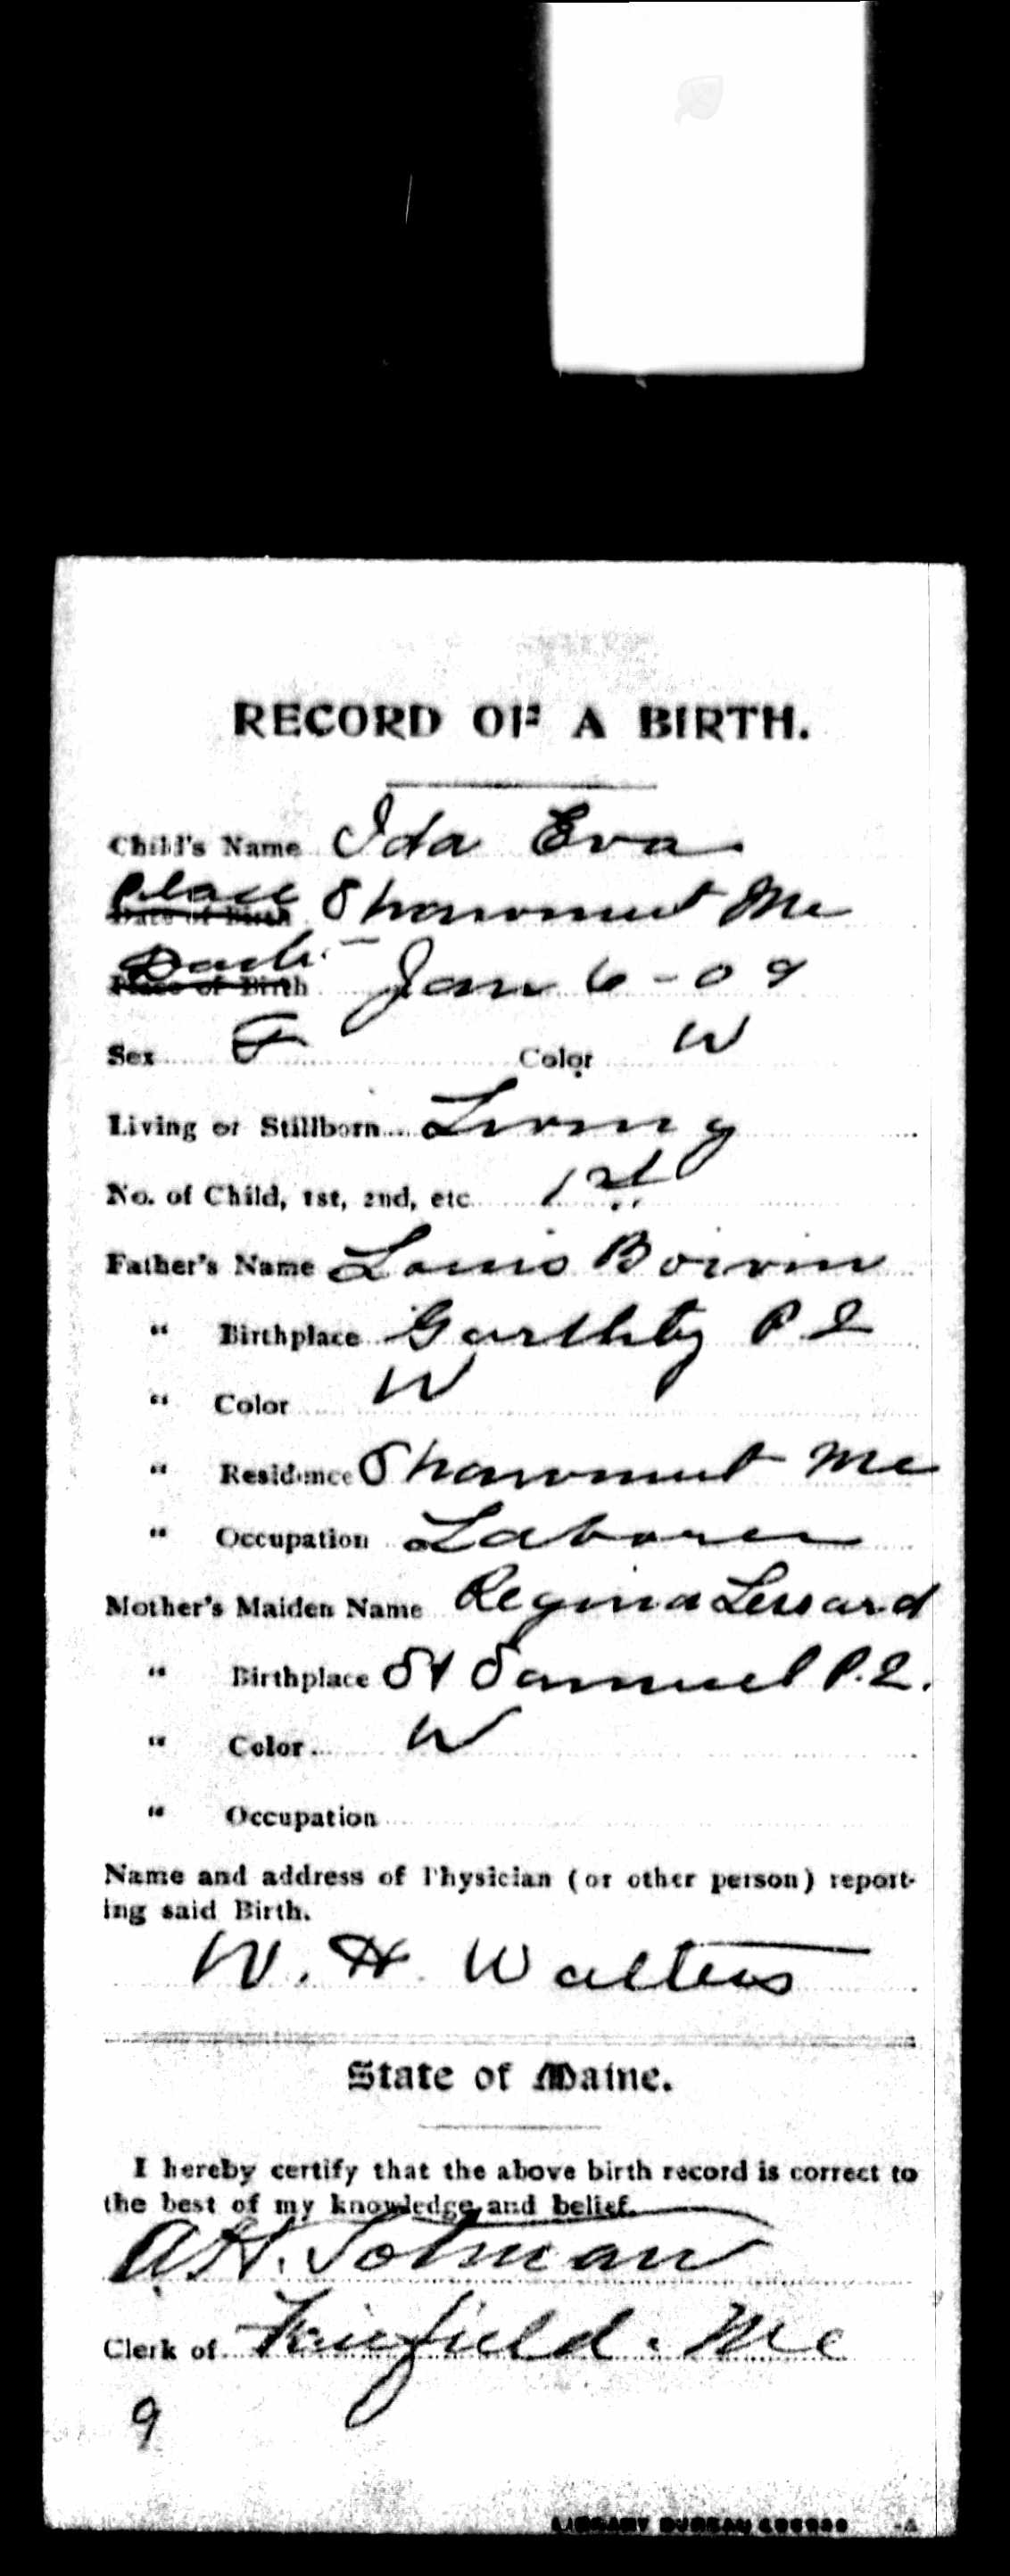 RECORD OF A BIRTH.
Child's Name Ida Eva
Place Date of Birth Shawmut Me
Date:- Place of Birth Jan 6-09
Sex F Color W
Living or Stillborn Living
No. of Child, 1st, 2nd, etc 1st
Father's Name Louis Boivin
" Birthplace Garthby P Q
" Color W
" Residence Shawmut Me
" Occupation Laborer
Mother's Maiden Name Regina Lessard
" Birthplace St Samuel P.Q.
" Color W
" Occupation
Name and address of Physician (or other person) report-
ing said Birth.
W. H. Walters
State of Maine.
I hereby certify that the above birth record is correct to
the best of my knowledge and belief.
A H. Totman
Clerk of Fairfield. Me
9
LIBRARY BUREAU